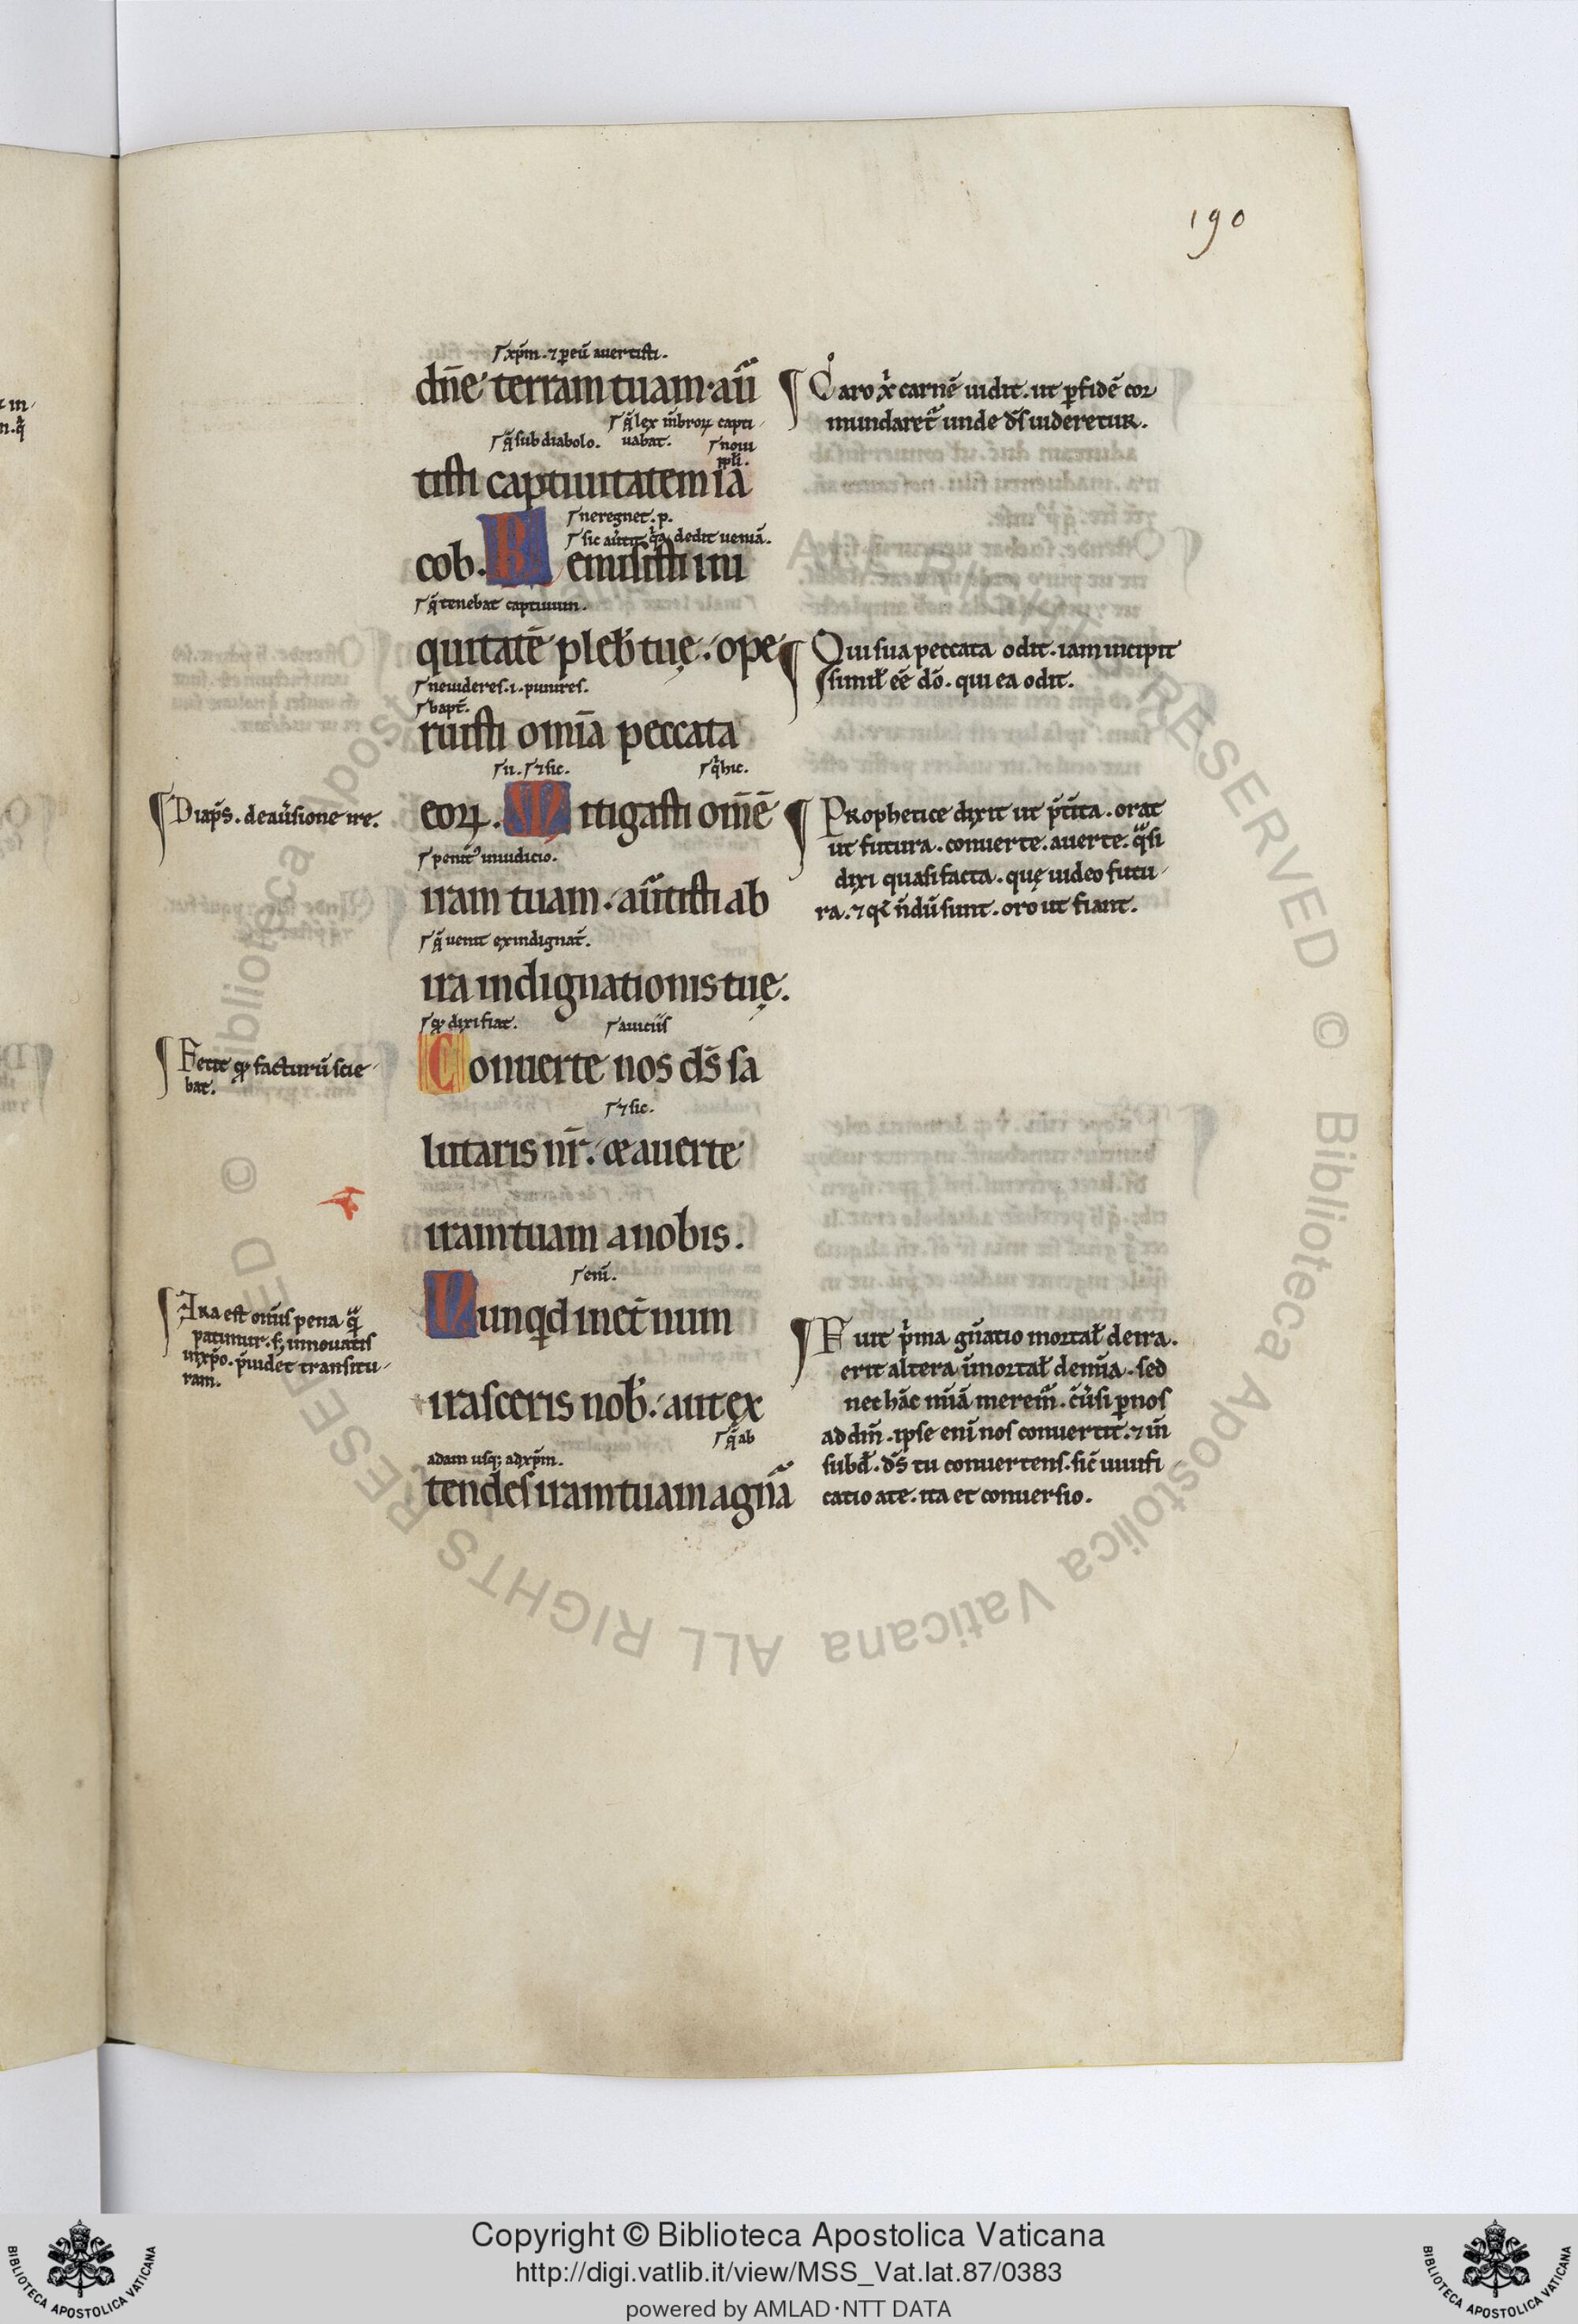 190
xp̄m. ⁊ ꝑ eū auertisti.
dn̄e terram tuam. aū
q̄ lex mēbroꝝ capti
q̄ sub diabolo. uabat. noui
ppl̄i.
tisti captiuitatem ia
ne regnet. p.
sic aūtit q̄a dedit ueniā.
cob. Remisisti ini
q̄ tenebat captiuum.
quitatē pleb̄ tuę. ope
ne uideres .i. punires.
bapt̄.
ruisti omīa peccata
⁊ sic. q̄ hic.
eoꝝ. Mitigasti om̄ē
penit᷒ in iudicio.
iram tuam. aūtisti ab
q̄ uenit ex indignat̄.
ira indignationis tuę.
qđ dixi fiat. a uiciis
Conuerte nos ds̄ sa
⁊ sic.
lutaris nr̄. & auerte
iram tuam a nobis.
enī.
Nunqd in et̄num
irasceris nob̄. aut ex
q̄ ab
adam usq; ad xp̄m.
tendes iram tuam a gn̄ā
Diaps̄. de aūsione ire.
Fecit qđ facturū scie
bat.
Ira est om̄is pena q̄
patimur. s; innouatis
in xp̄o. p̄uidet transitu
ram.
Caro x̄ carnē uidit. ut ꝑ fidē cor
mundaret̄ unde ds̄ uideretur.
Qui sua peccata odit. iam incipit
simil̄ eē dō. qui ea odit.
Prophetice dixit ut p̄t̄ita. orat
ut futura. conuerte. auerte. q̄si
dixi quasi facta. quę uideo futu
ra. ⁊ q̄ n̄dū sunt. oro ut fiant.
Fuit p̄ma gn̄atio mortal̄ de ira.
erit altera īmortal̄ de mīa. sed
nec hāc mīā merem̄. c̄ūsi ꝑ nos
ad dm̄. ipse enī nos conuertit. ⁊ in̄
subd̄. ds̄ tu conuertens. sic̄ uiuifi
catio a te. ita et conuersio.
Copyright © Biblioteca Apostolica Vaticana
http://digi.vatlib.it/view/MSS_Vat.lat.87/0383
powered by AMLAD·NTT DATA
BIBLIOTECA APOSTOLICA VATICANA
BIBLIOTECA APOSTOLICA VATICANA
© Biblioteca Apostolica Vaticana ALL RIGHTS RESERVED